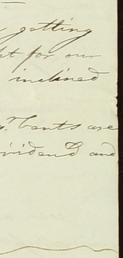 getting
for our
inclined
Cents are
dividend and